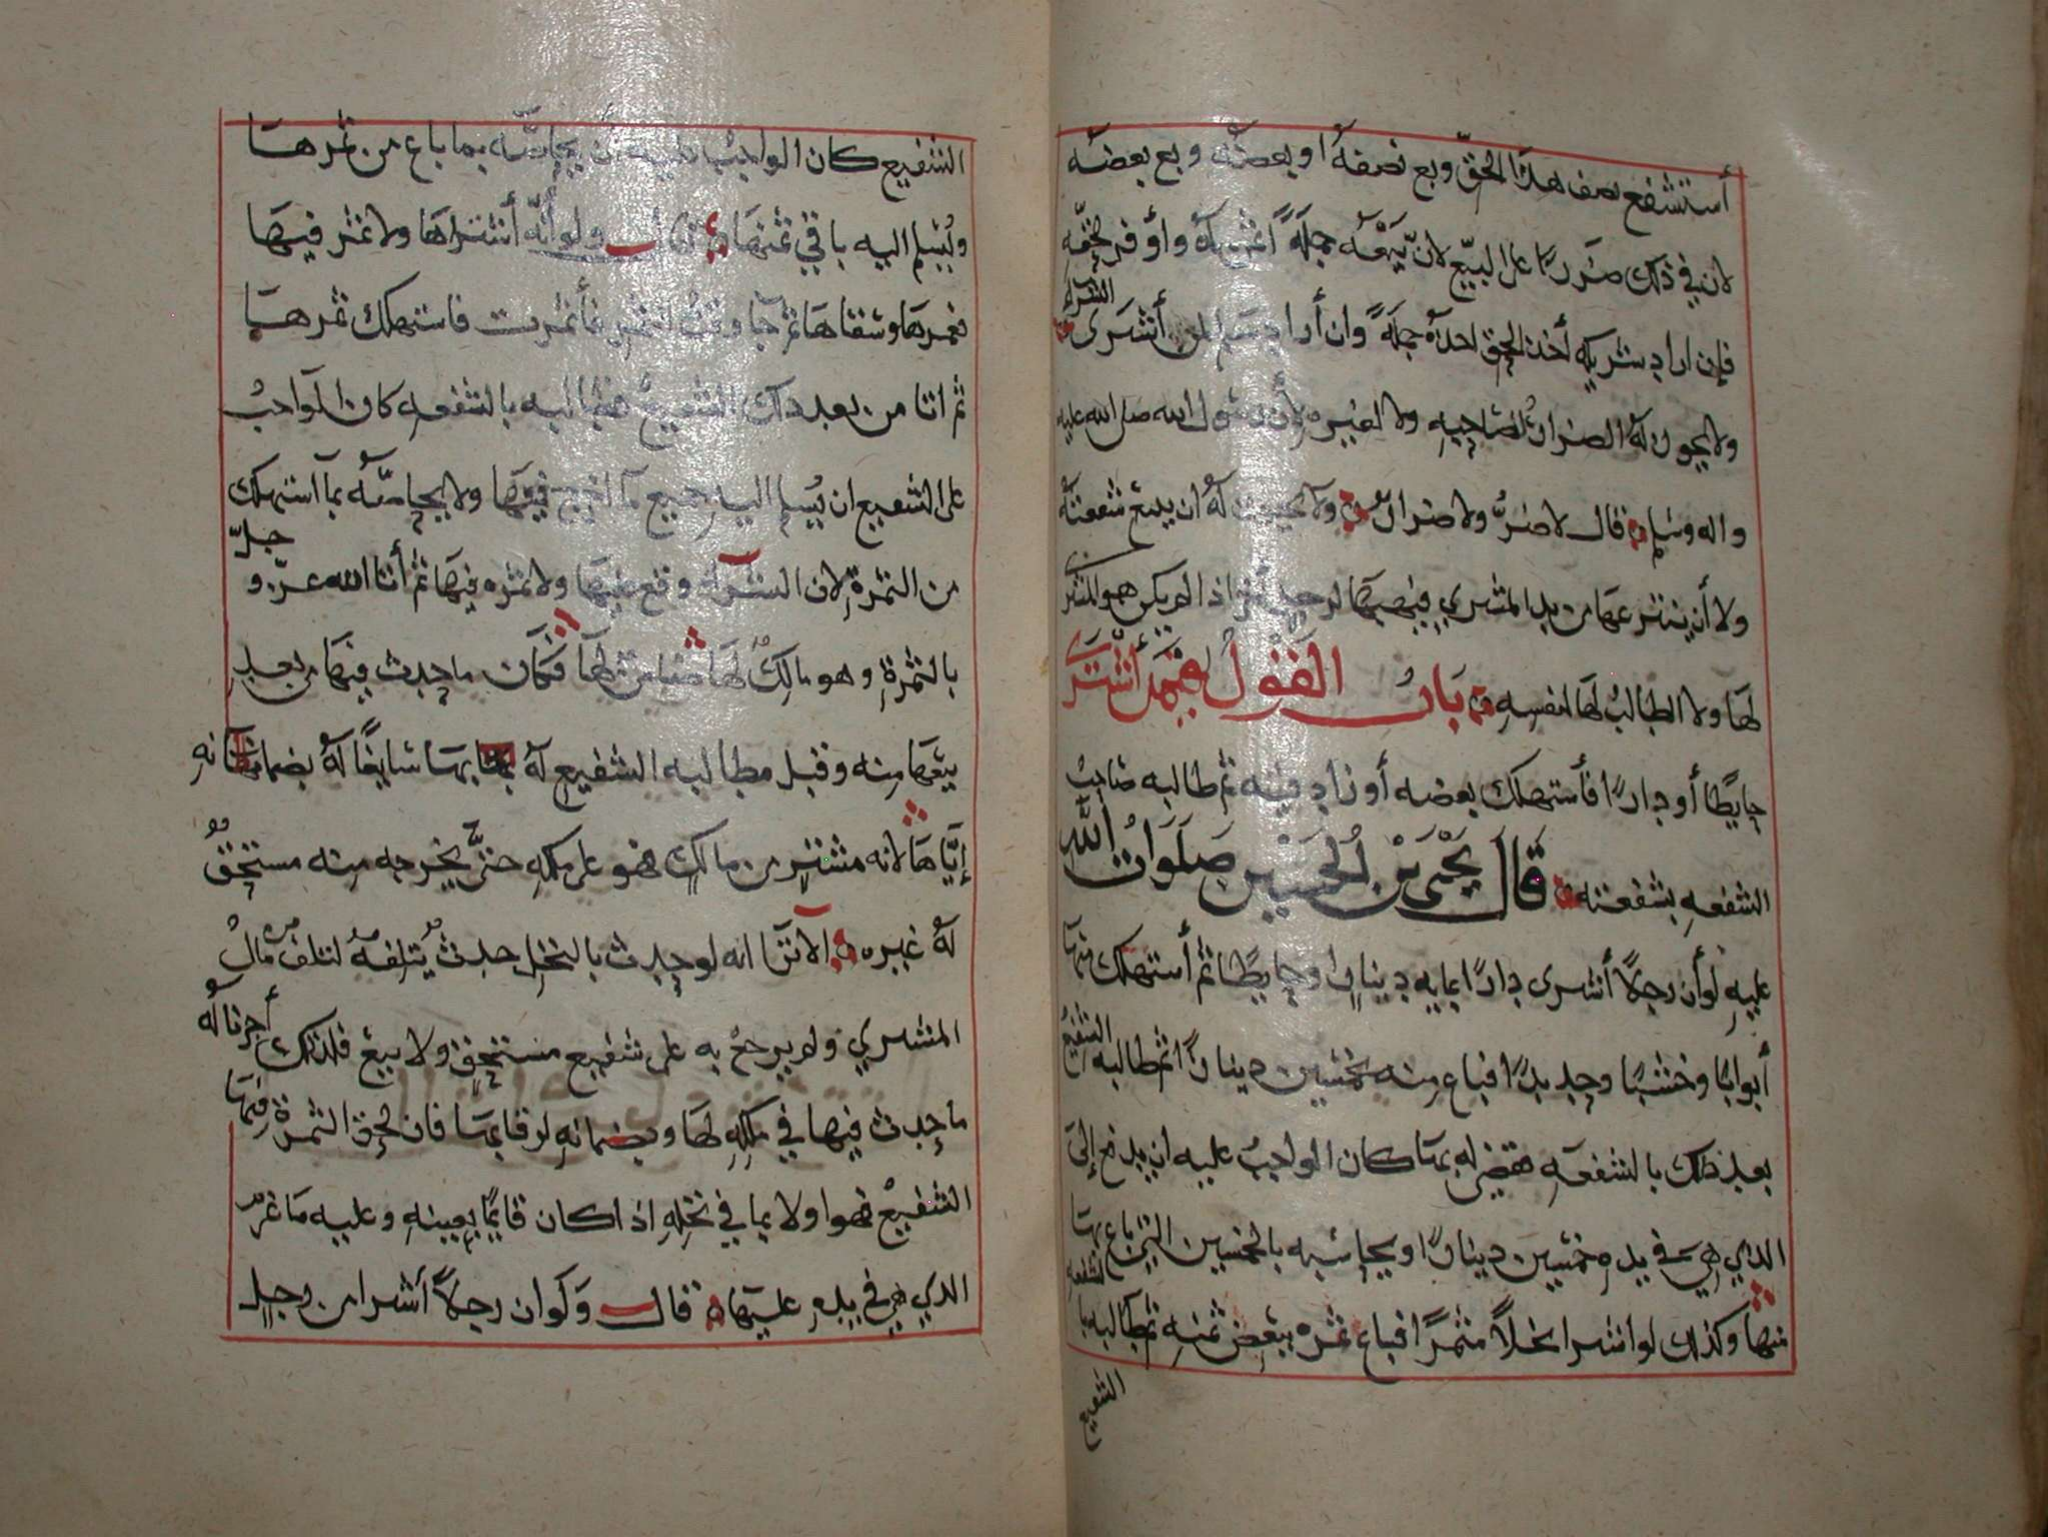 أستشفع نصف هذا الحق وبع نصفه او بعضه وبع بعضه
لان في ذلك ضررا على البيع لان بيعه جملة أغبى له وأوفر لحقه
فإن اراد شريكه أخذ الحق اخذه جملة وان أراد سلم لمن أشترى الشراء
ولا يجوز له الضرار لصاحبه ولا لغيره لأن رسول الله صلى الله عليه
واله وسلم قال لا ضرر ولا ضرار ولا يجوز له ان يبيع شفعته
ولا أن ينتزعها من يد المشتري فيهبها لرجل اذ لم يكن هو المشتري
لها ولا الطالب لها لنفسه باب القول فيمن أشترى
حايطا أو دارا فأستهلك بعضه أو زاد فيه ثم طالبه صاحب
الشفعه بشفعته قال يحيى بن الحسين صلوات الله
عليه لو أن رجلا أشترى دارا بمايه دينار وحايطا ثم أستهلك منها
أبوابا وخشبا وحديدا فباع منه بخمسين دينارا ثم طالبه الشفيع
بعد ذلك بالشفعه فقضي له بها كان الواجب عليه ان يدفع إلى
الذي هي في يده خمسين دينارا ويحاسبه بالخمسين التي باع بها
منها وكذلك لو اشترا نخلا مثمرا فباع ثمره ببعض ثمنه ثم طالبه بالشفعه
الشفيع
الشفيع كان الواجب عليه أن يحاصه بما باع من ثمرها
ويسلم اليه باقي ثمنها قال ولو أنه أشتراها ولا ثمر فيها
فعمرها وسقاها ثم جا وقت الثمر فأثمرت فاستهلك ثمرها
ثم اتا من بعد ذلك الشفيع فطالبه بالشفعه كان الواجب
على الشفيع ان يسلم اليه جميع ما اخرج فيها ولا يحاصه بما استهلك
من الثمرة لان الشرآء وقع عليها ولا ثمره فيها ثم أتا الله عز وجل
بالثمرة وهو مالك لها ضامن لها فكان ما حدث فيها من بعد
بيعها منه وقبل مطالبه الشفيع له بها سايغا له بضمانه
إياها لانه مشتر من مالك فهو على ملكه حتى يخرجه منه مستحق
له غيره الا ترا انه لو حدث بالنخل حدث يتلفه لتلف من مال
المشتري ولم يرجع به على شفيع مستحق ولا بيع فلذلك أجزنا له
ما حدث فيها في ملكه لها وبضمانه لرقابها فان لحق الثمرة فيها
الشفيع فهو اولا بما في نخله اذا كان قايما بعينه وعليه ما غرم
الذي هي في يده عليها قال ولو ان رجلا أشترا من رجل